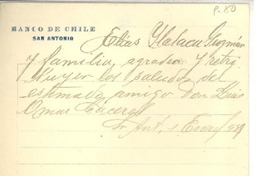 P. 80
BANCO DE CHILE
SAN ANTONIO
Elías Guzmán
y familia, agradece y retri
buyen los saludos del
estimado amigo Don Luis
Omar Cáceres